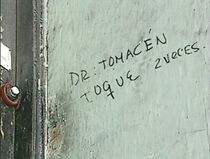 DR. TOMACÉN
TOQUE 2 VECES.